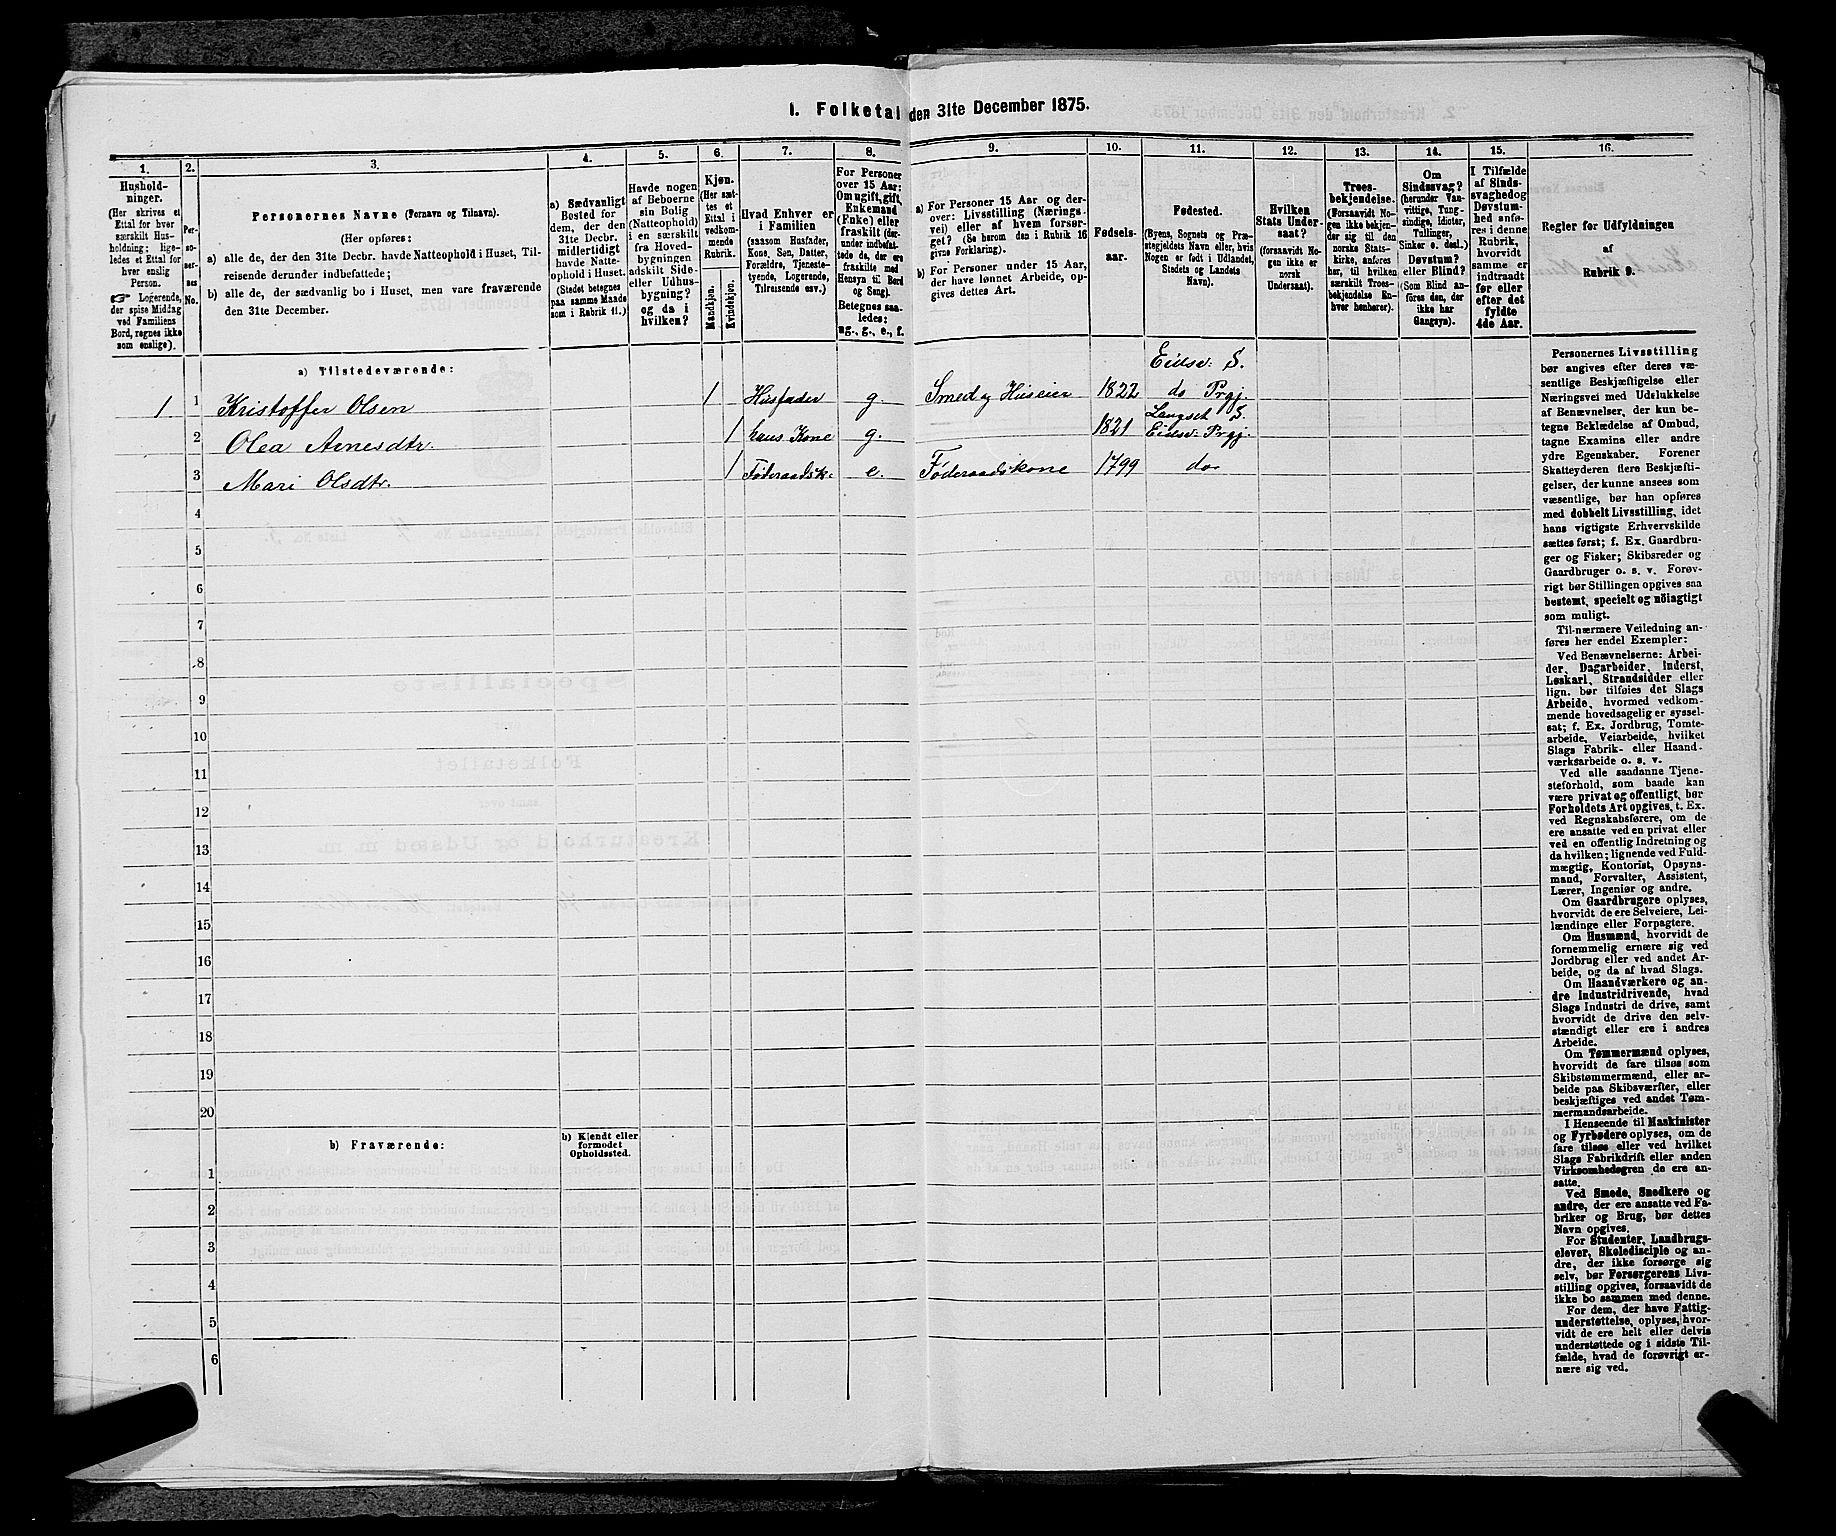 1. Folketal den 31te December 1875.
1.
2.
3.
4.
5.
6.
7.
8.
9.
10.
11.
12.
13.
14.
15.
16.
Hushold-
ninger.
(Her skrives et
Ettal for hver
særskilt Hus-
holdning; lige-
ledes et Ettal for
hver enslig
Person.
☞ Logerende,
der spise Middag
ved Familiens
Bord, regnes ikke
som enslige).
Per-
so-
ner-
nes
No.
Personernes Navne (Fornavn og Tilnavn).
(Her opføres:
a) alle de, der den 31te Decbr. havde Natteophold i Huset, Til-
reisende derunder indbefattede;
b) alle de, der sædvanlig bo i Huset, men vare fraværende
den 31te December.
a) Sædvanligt
Bosted for
dem, der den
31te Decbr.
midlertidigt
havde Natte-
ophold i Huset.
(Stedet betegnes
paa samme Maade
som i Rubrik 11.)
Havde nogen
af Beboerne
sin Bolig
(Natteophold)
i en særskilt
fra Hoved-
bygningen
adskilt Side-
eller Udhus-
bygning?
og da i
hvilken?
Kjøn.
(Her sæt-
tes et
Ettal i
vedkom-
mende
Rubrik.
Mandkjøn.
Kvindekjøn.
Hvad Enhver er
i Familien
(saasom Husfader,
Kone, Søn, Datter,
Forældre, Tjeneste-
tyende, Logerende,
Tilreisende osv.)
For Personer
over 15 Aar:
Om ugift, gift,
Enkemand
(Enke) eller
fraskilt (der-
under indbefat-
tede de, der ere
fraskilte med
Hensyn til Bord
og Seng).
Betegnes saa-
ledes:
ug., g., e., f.
a) For Personer 15 Aar og der-
over: Livsstilling (Nærings-
vei) eller af hvem forsør-
get? (Se herom den i Rubrik 16
givne Forklaring).
b) For Personer under 15 Aar,
der have lønnet Arbeide, op-
gives dettes Art.
Fødsels-
aar.
Fødested.
(Byens, Sognets og Præ-
stegjeldets Navn eller, hvis
Nogen er født i Udlandet,
Stedets og Landets
Navn).
Hvilken
Stats Under-
saat?
(forsaavidt No-
gen ikke er
norsk
Undersaat).
Troes-
bekjendelse.
(Forsaavidt No-
gen ikke bekjen-
der sig til den
norske Stats-
kirke, anføres
her, til hvilken
særskilt Troes-
bekjendelse En-
hver henhører).
Om
Sindssvag?
(herunder Van-
vittige, Tung-
sindige, Idioter,
Tullinger,
Sinker o. desl.)
Døvstum?
eller Blind?
(Som Blind an-
føres den, der
ikke har
Gangsyn).
I Tilfælde
af Sinds-
svaghed og
Døvstum-
hed anfø-
res i denne
Rubrik,
hvorvidt
samme er
indtraadt
før eller
efter det
fyldte
4de Aar.
Regler for Udfyldningen
af
Rubrik 9.
a) Tilstedeværende:
Eidsv: S.
1 1 Kristoffer Olsen 1 Husfader g. Smed og Huseier 1822 do Prgj.
Langset S.
2 Olea Arnesdtr. 1 hans Kone g. 1821 Eidsv: Prgj.
3 Mari Olsdtr. 1 Føderaadsk. e. Føderaadskone 1799 do
4
5
6
7
8
9
10
11
12
13
14
15
16
17
18
19
20
b) Fraværende:
b) Kjendt eller
formodet
Opholdssted.
1
2
3
4
5
6
Personernes Livsstilling
bør angives efter deres væ-
sentlige Beskjæftigelse eller
Næringsvei med Udelukkelse
af Benævnelser, der kun be-
tegne Beklædelse af Ombud,
tagne Examina eller andre
ydre Egenskaber. Forener
Skatteyderen flere Beskjæfti-
gelser, der kunne ansees som
væsentlige, bør han opføres
med dobbelt Livsstilling, idet
hans vigtigste Erhvervskilde
sættes først; f. Ex. Gaardbru-
ger og Fisker; Skibsreder og
Gaardbruger o. s. v. Forøv-
rigt bør Stillingen opgives saa
bestemt, specielt og nöiagtigt
som muligt.
Til nærmere Veiledning an-
føres her endel Exempler:
Ved Benævnelserne: Arbei-
der, Dagarbeider, Inderst,
Løskarl, Strandsidder eller
lign. bør tilføies det Slags
Arbeide, hvormed vedkom-
mende hovedsagelig er syssel-
sat; f. Ex. Jordbrug, Tomte-
arbeide, Veiarbeide, hvilket
Slags Fabrik- eller Haand-
værksarbeide o. s. v.
Ved alle saadanne Tjene-
steforhold, som baade kan
være privat og offentligt, bør
Forholdets Art opgives, t. Ex.
ved Regnskabsførere, om de
ere ansatte ved en privat eller
ved en offentlig Indretning og
da hvilken; lignende ved Fuld-
mægtig, Kontorist, Opsyns-
mand, Forvalter, Assistent,
Lærer, Ingeniør og andre.
Om Gaardbrugere oplyses,
hvorvidt de ere Selveiere, Lei-
lændinge eller Forpagtere.
Om Husmænd, hvorvidt de
fornemmelig ernære sig ved
Jordbrug eller ved andet Ar-
beide, og da af hvad Slags.
Om Haandværkere og an-
dre Industridrivende, hvad
Slags Industri de drive, samt
hvorvidt de drive den selv-
stændigt eller ere i andres
Arbeide.
Om Tømmermænd oplyses,
hvorvidt de fare tilsøs som
Skibstømmermænd, eller ar-
beide paa Skibsværfter, eller
beskjæftiges ved andet Tøm-
mermandsarbeide.
I Henseende til Maskinister
og Fyrbødere oplyses, om de
fare tilsøs eller ved hvilket
Slags Fabrikdrift eller anden
Virksomhedsgren de ere an-
satte.
Ved Smede, Snedkere og
andre, der ere ansatte ved Fa-
briker og Brug, bør dettes
Navn opgives.
For Studenter, Landbrugs-
elever, Skoledisciple og an-
dre, der ikke forsørge sig
selv, bør Forsørgerens Livs-
stilling opgives, forsaavidt de
ikke bo sammen med denne.
For dem, der have Fattig-
understøttelse, oplyses, hvor-
vidt de ere helt eller delvis
understøttede og i sidste Til-
fælde, hvad de forøvrigt er-
nære sig ved.